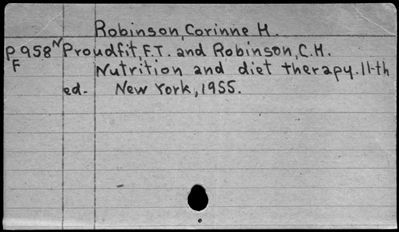 Robinson, Corinne H.
P 958 N Proudfit, F.T. and Robinson, C.H.
F Nutrition and diet therapy. 11-th
ed. New York, 1955.